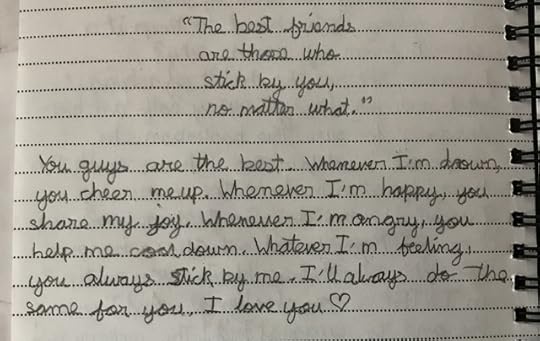 "The best friends
are those who
stick by you,
no matter what."
You guys are the best. Whenever I'm down,
you cheer me up. Whenever I'm happy, you
share my joy. Whenever I'm angry, you
help me cool down. Whatever I'm feeling,
you always stick by me. I'll always do the
same for you. I love you ♡